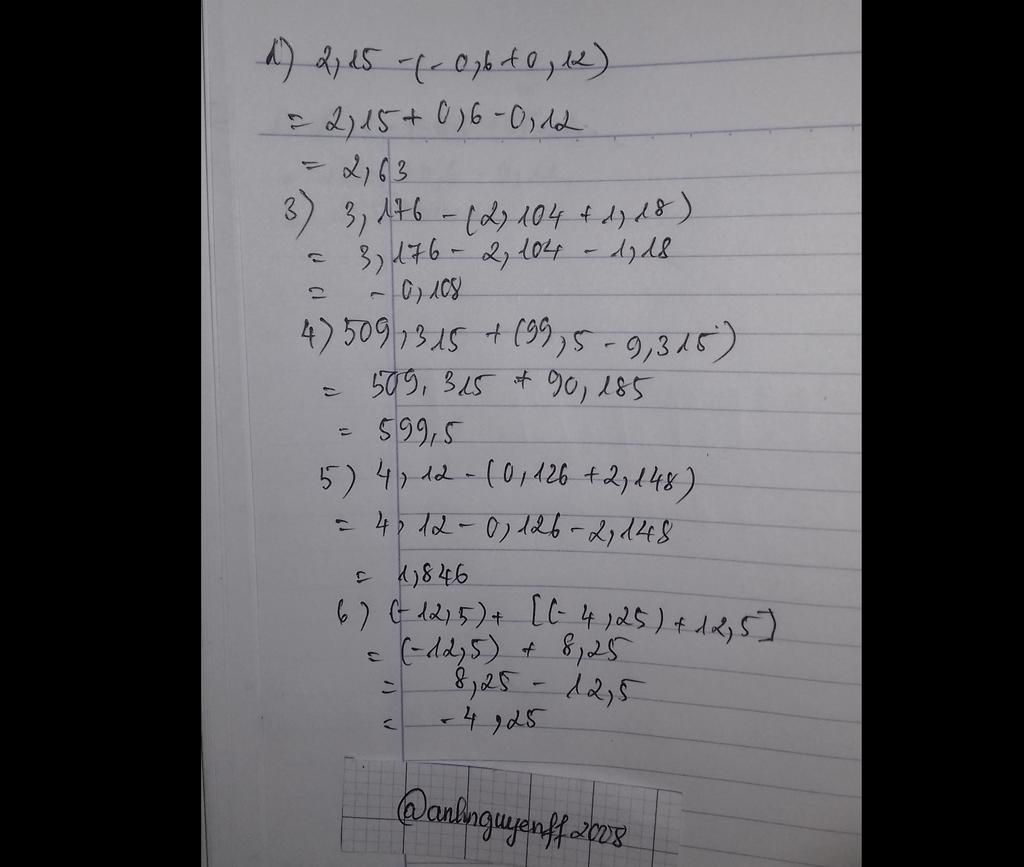 1) 2,15 - (- 0,6 + 0,12)
= 2,15 + 0,6 - 0,12
= 2,63
3) 3,176 - (2,104 + 1,18)
= 3,176 - 2,104 - 1,18
= - 0,108
4) 509,315 + (99,5 - 9,315)
= 509,315 + 90,185
= 599,5
5) 4,12 - (0,126 + 2,148)
= 4,12 - 0,126 - 2,148
= 1,846
6) (-12,5) + [(- 4,25) + 12,5]
= (-12,5) + 8,25
= 8,25 - 12,5
= - 4,25
@anhnguyenff2008